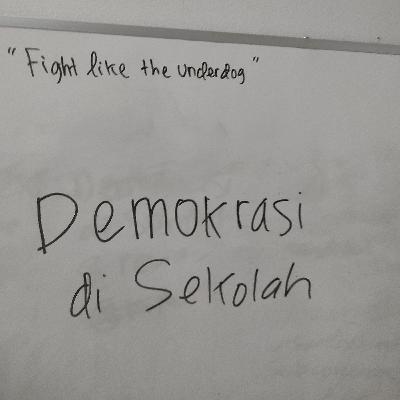 "Fight like the underdog"
Demokrasi
di Sekolah